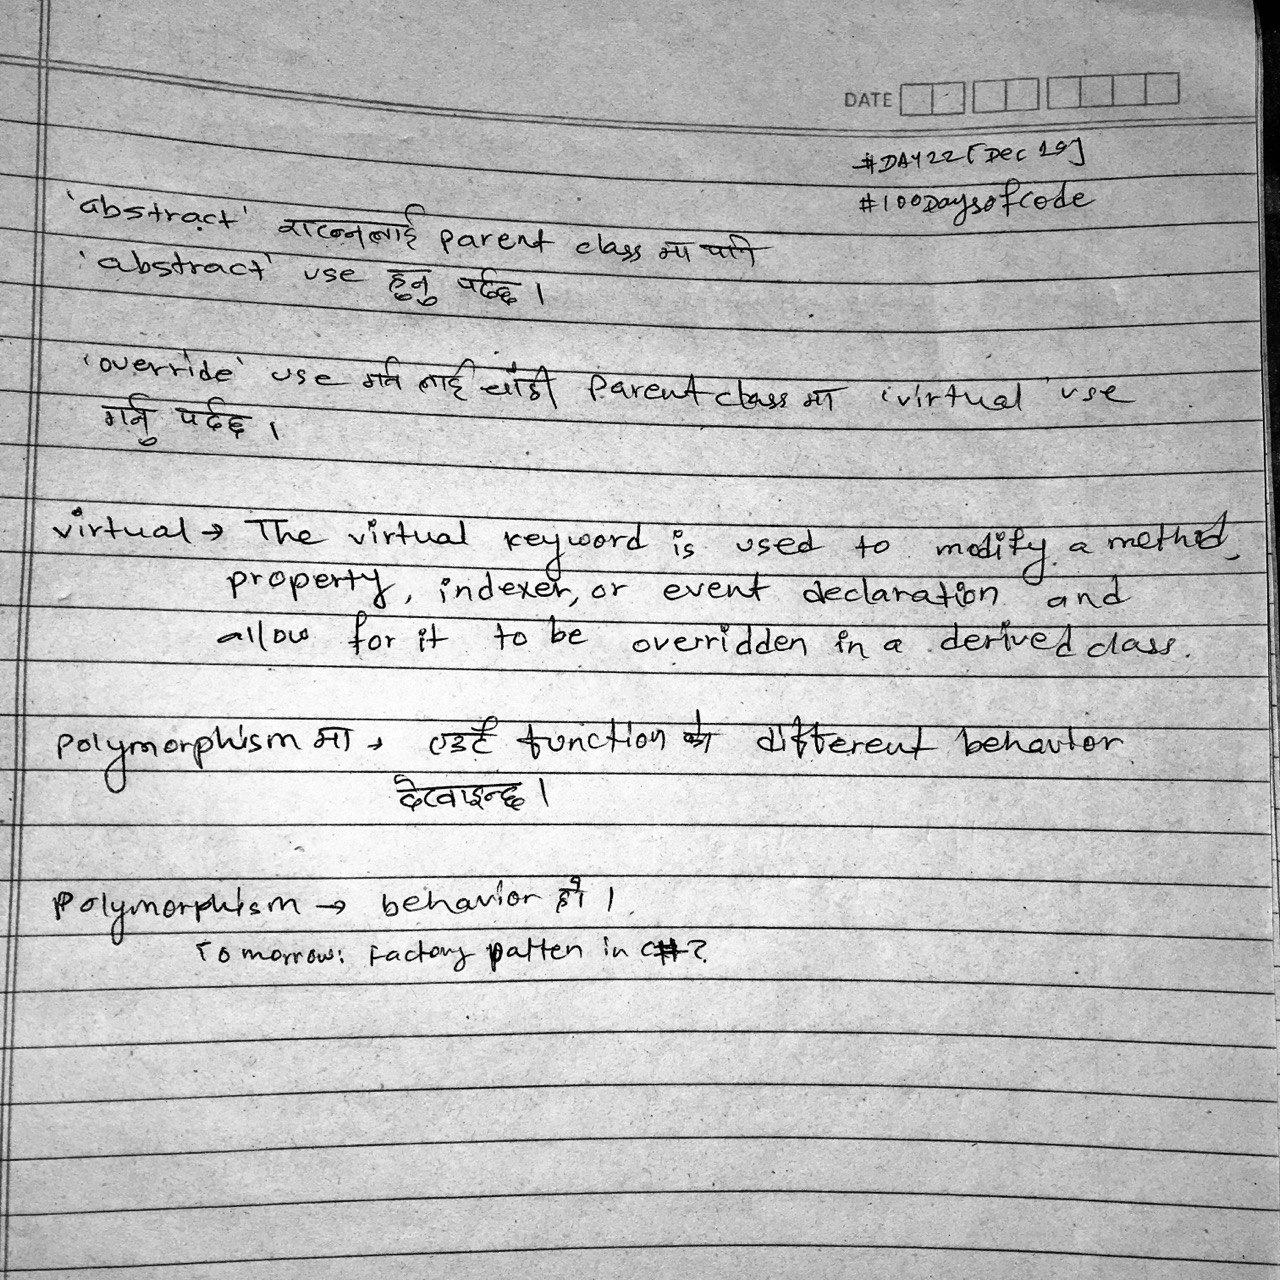 DATE
#DAY22 [Dec 19]
#100DaysofCode
'abstract' राख्नलाई parent class मा पनि
'abstract' use हुनु पर्दछ ।
'override' use गर्न लाई चाँही parent class मा 'virtual' use
गर्नु पर्दछ ।
virtual → The virtual keyword is used to modify a method,
property, indexer, or event declaration and
allow for it to be overridden in a derived class.
polymorphism मा → एउटै function को different behavior
देखाइन्छ ।
polymorphism → behavior हो ।
Tomorrow: Factory patten in C#?